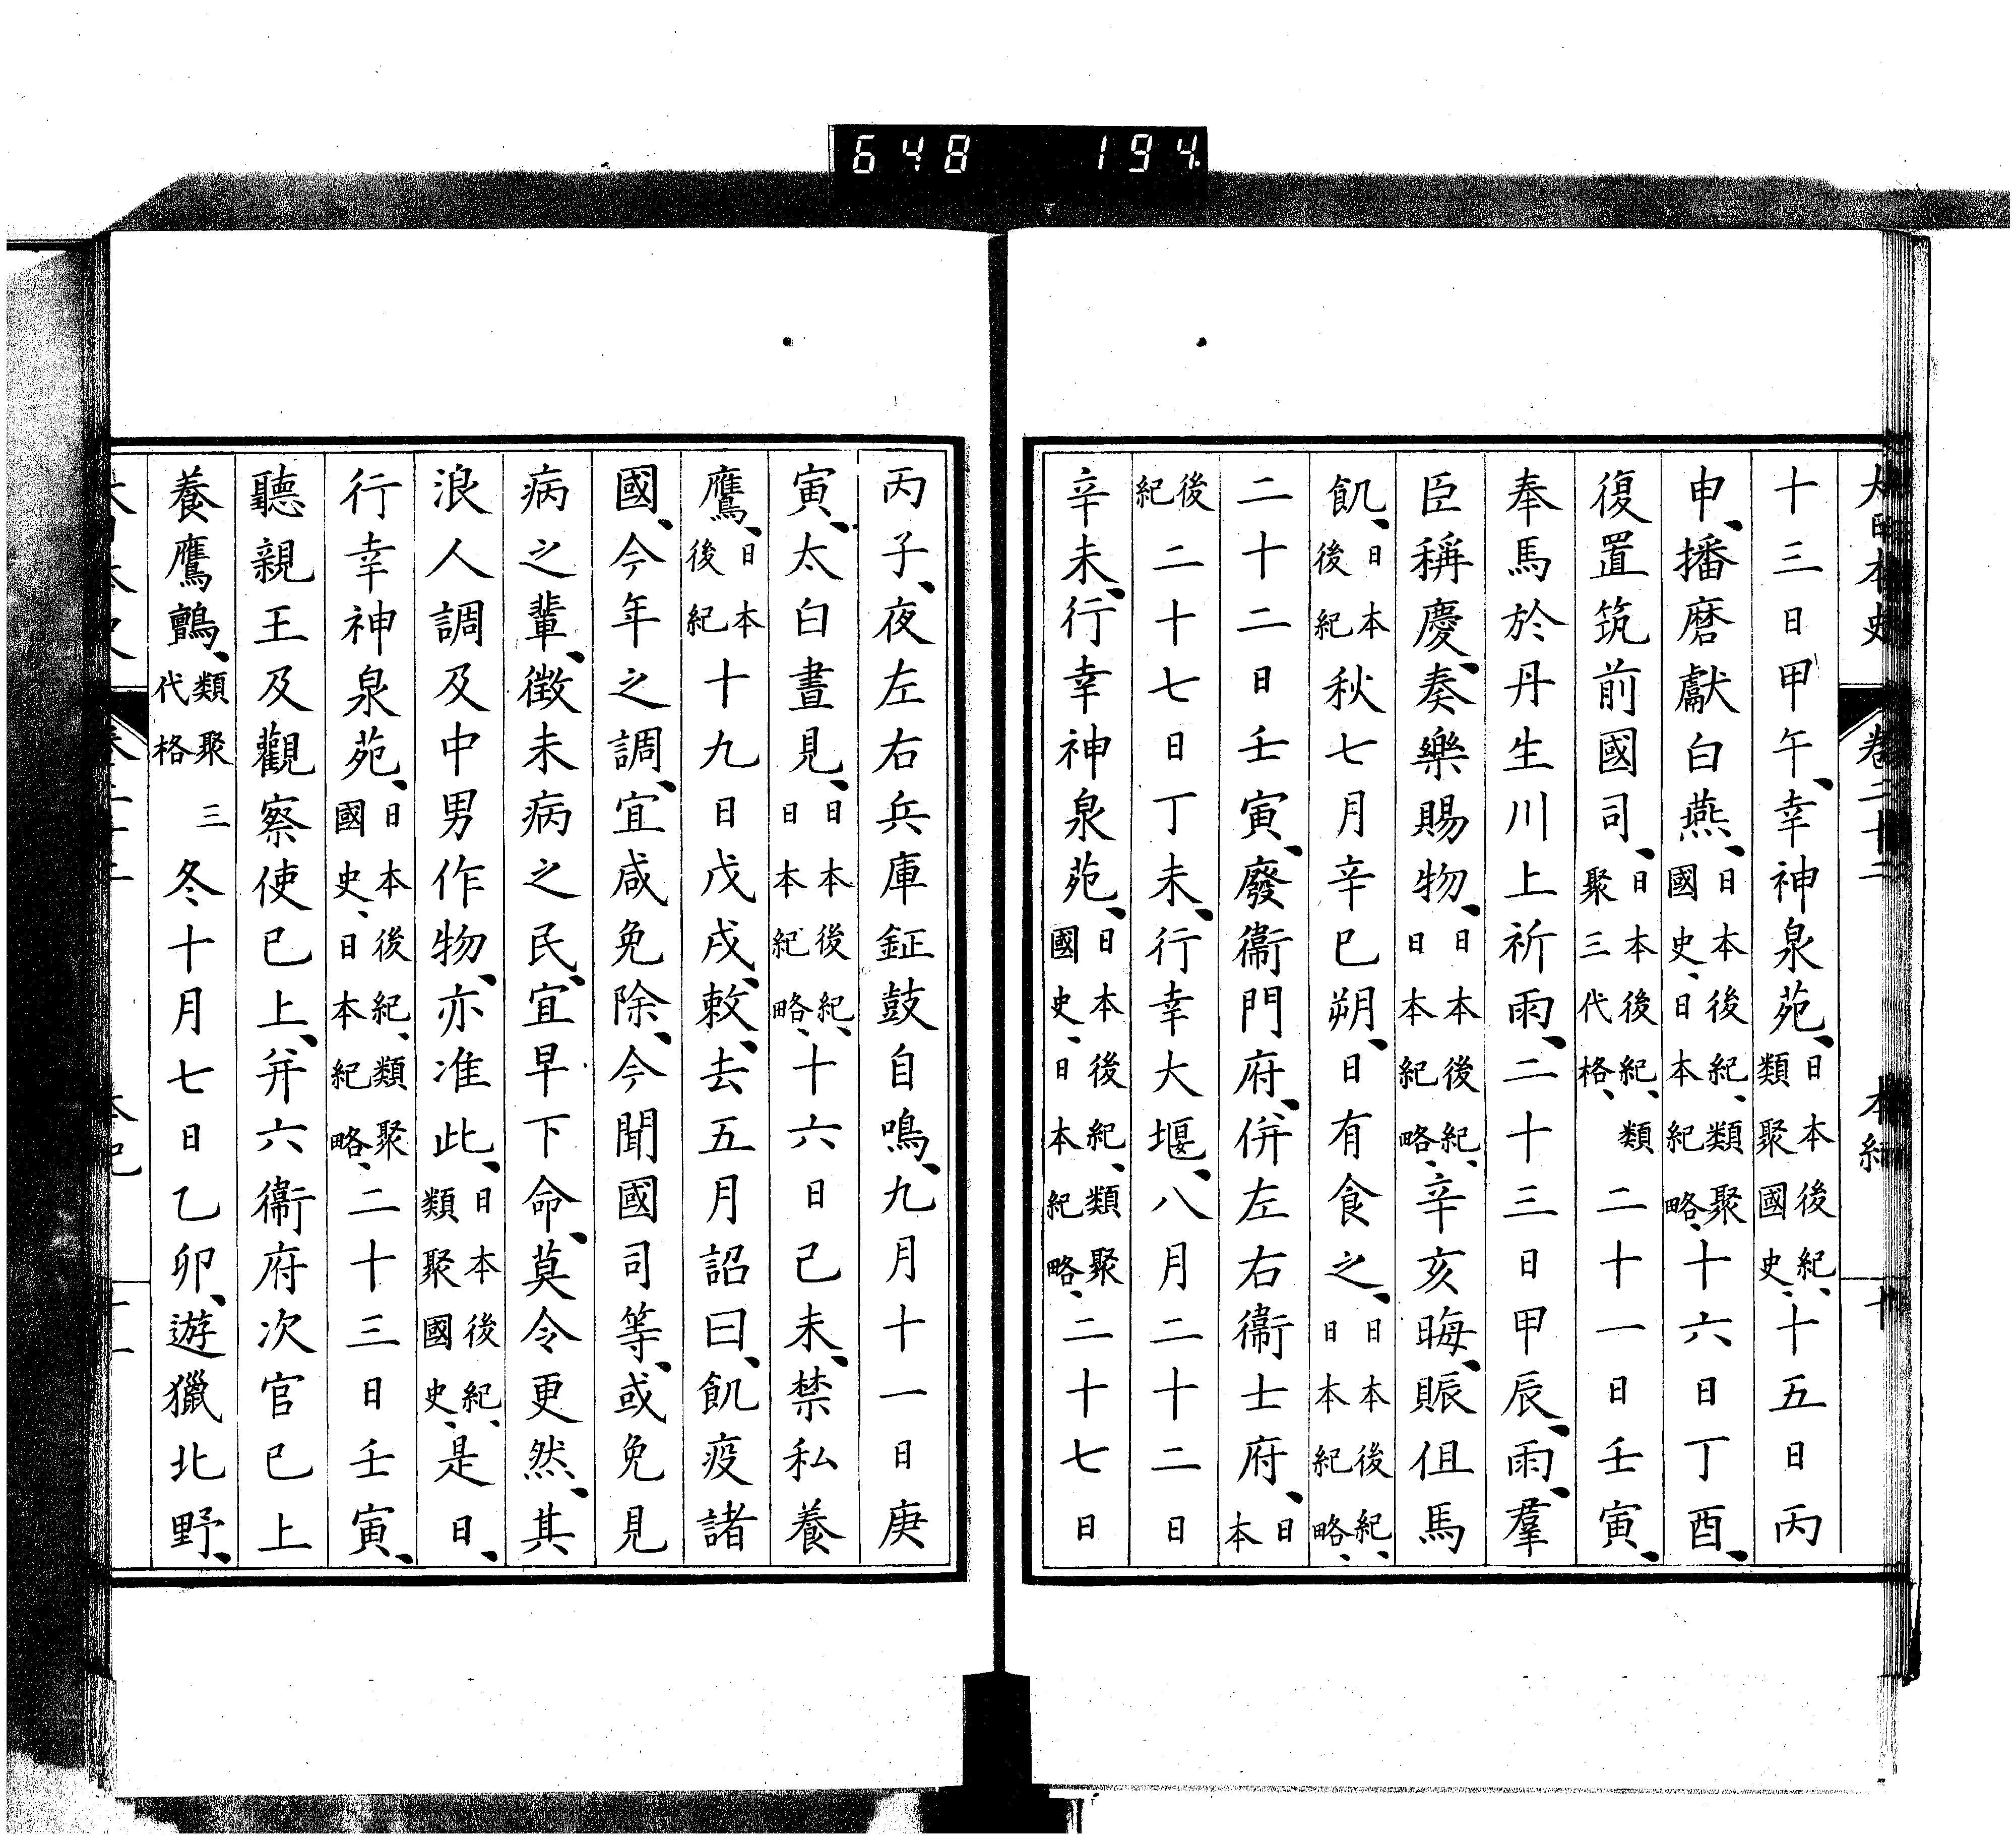 648 194
大日本史 卷二十二 本紀 十
十三日甲午、幸神泉苑、日本後紀、類聚國史、十五日丙
申、播磨獻白燕、日本後紀、類聚國史、日本紀略、十六日丁酉、
復置筑前國司、日本後紀、類聚三代格、二十一日壬寅、
奉馬於丹生川上祈雨、二十三日甲辰、雨、羣
臣稱慶、奏樂賜物、日本後紀、日本紀略、辛亥晦、賑但馬
飢、日本後紀秋七月辛巳朔、日有食之、日本後紀、日本紀略、
二十二日壬寅、廢衞門府、併左右衞士府、日本
後紀二十七日丁未、行幸大堰、八月二十二日
辛未、行幸神泉苑、日本後紀、類聚國史、日本紀略、二十七日
丙子、夜左右兵庫鉦鼓自鳴、九月十一日庚
寅、太白晝見、日本後紀、日本紀略、十六日己未、禁私養
鷹、日本後紀十九日戊戌、敕、去五月詔曰、飢疫諸
國、今年之調、宜咸免除、今聞國司等、或免見
病之輩、徴未病之民、宜早下命、莫令更然、其
浪人調及中男作物、亦准此、日本後紀、類聚國史、是日、
行幸神泉苑、日本後紀、類聚國史、日本紀略、二十三日壬寅、
聽親王及觀察使已上、幷六衞府次官已上
養鷹鸇、類聚三代格冬十月七日乙卯、遊獵北野、